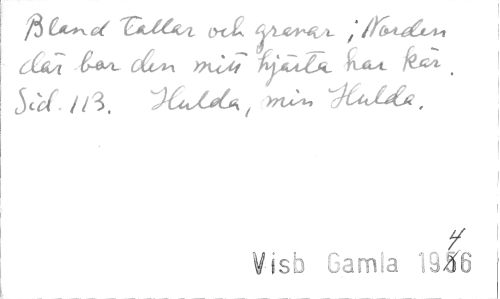 Bland tallar och granar i Norden
där bor den mitt hjärta har kär.
Sid. 113. Hulda, min Hulda.
4
Visb Gamla 1956